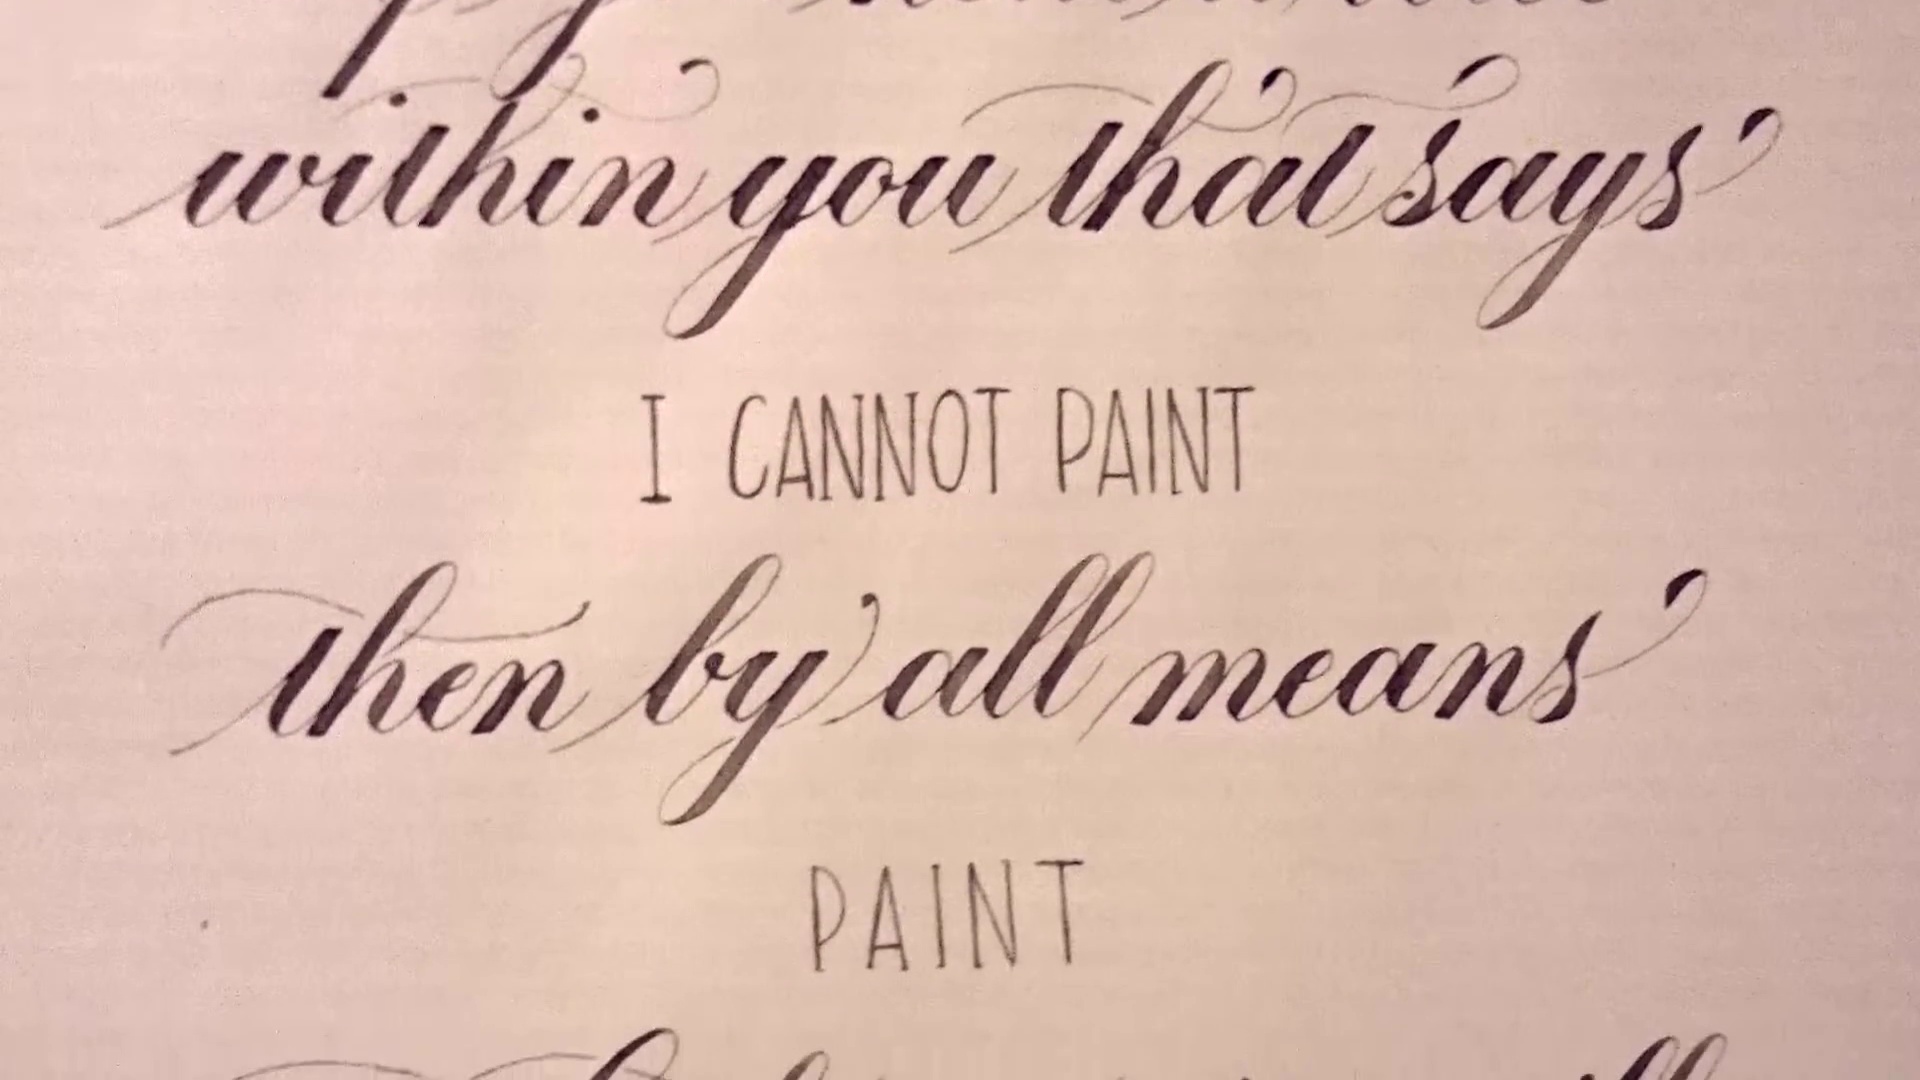 within you that says
I CANNOT PAINT
then by all means
PAINT